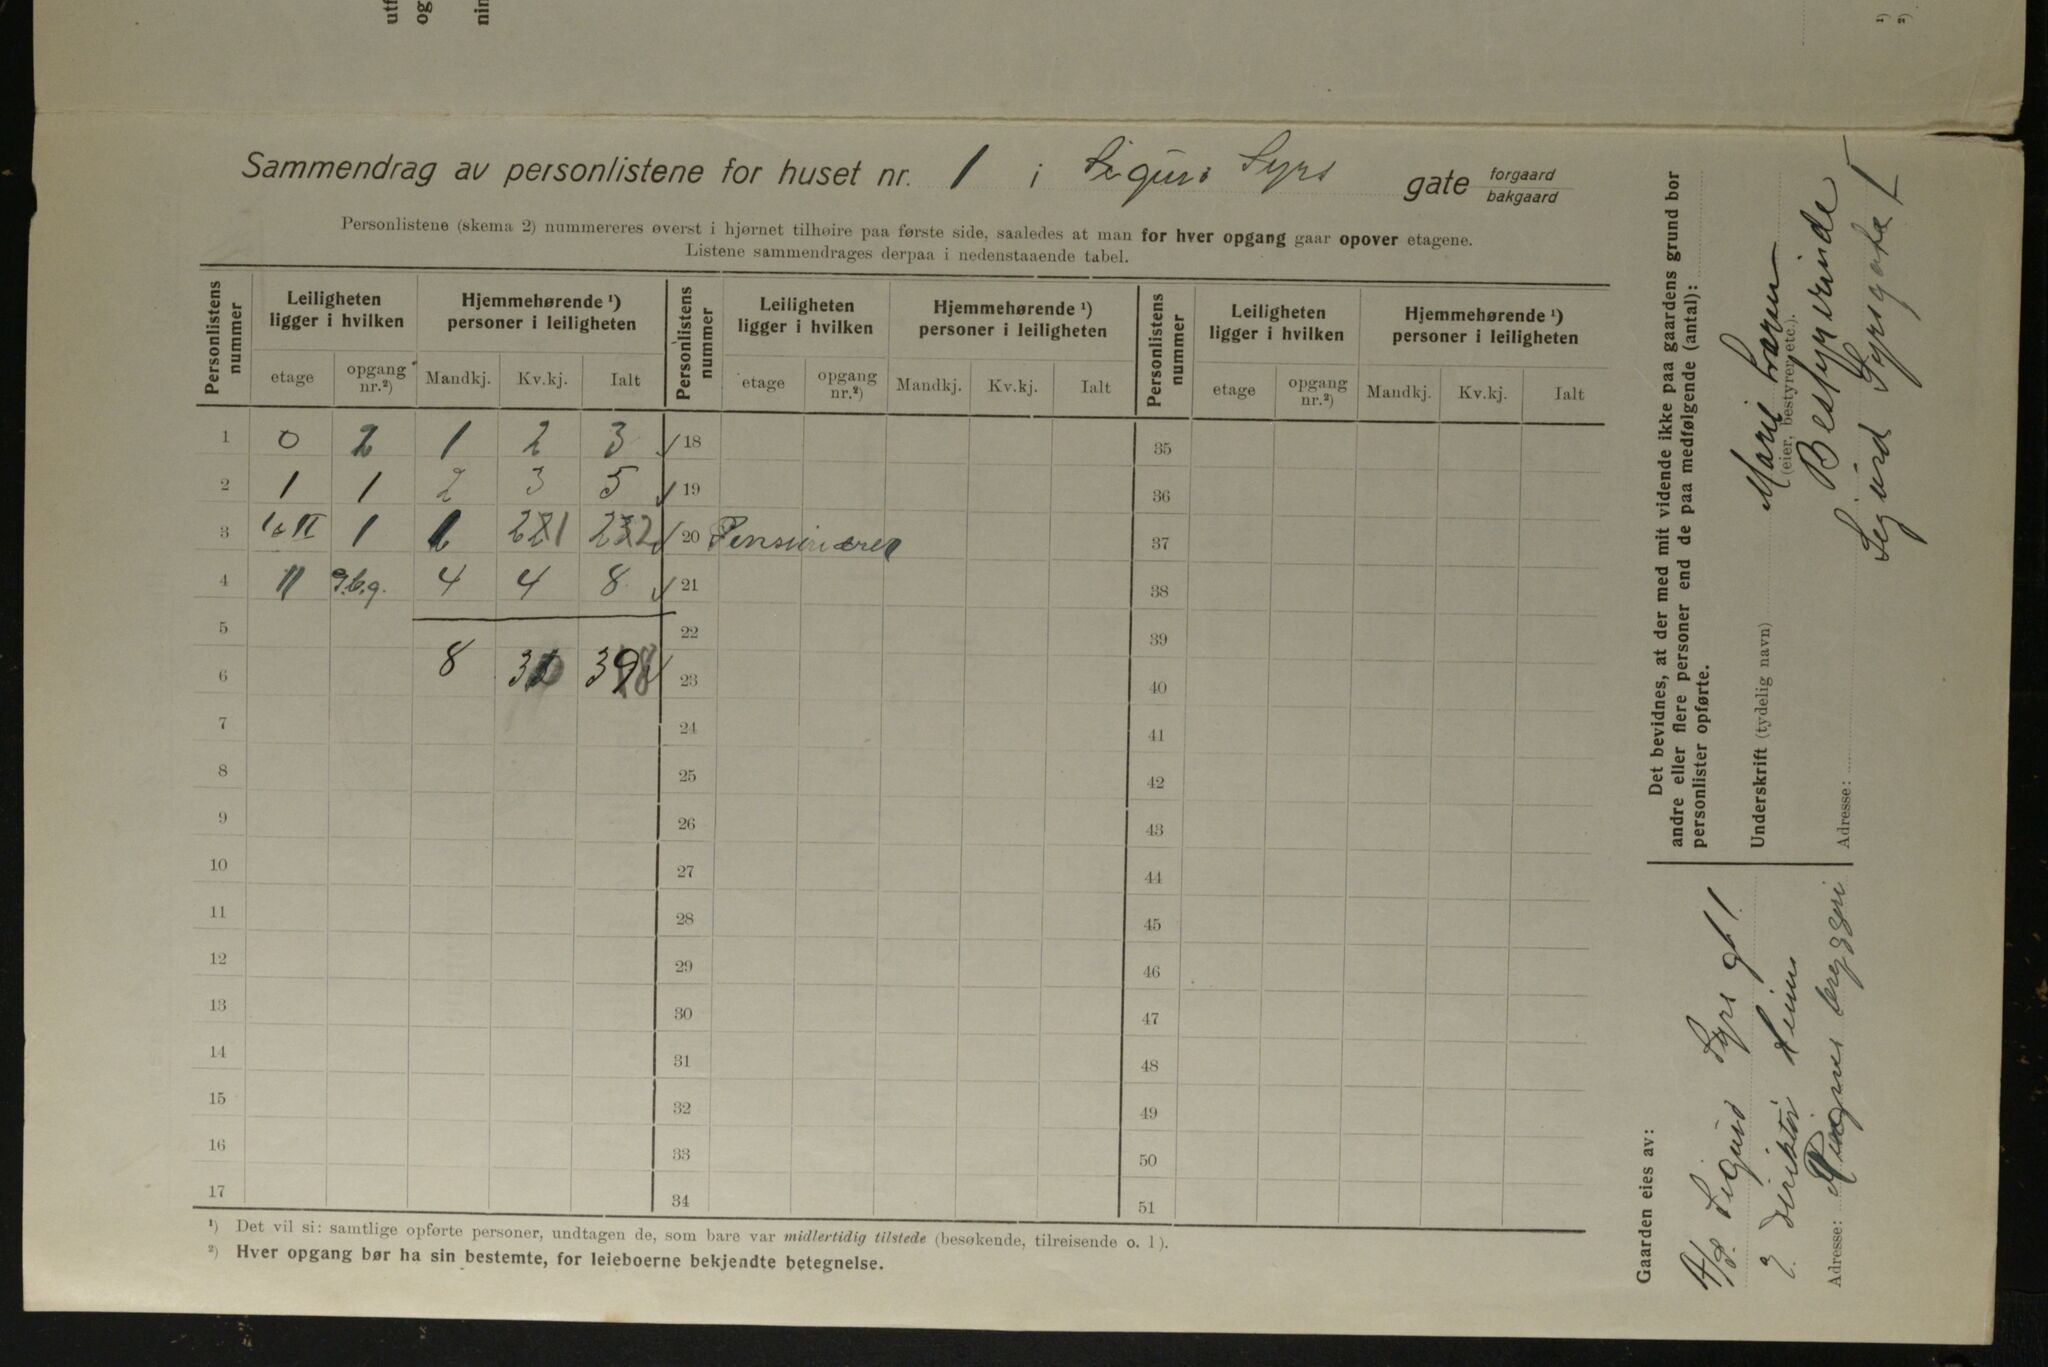 utf
og
nin
1)
2)
Sammendrag av personlistene for huset nr. 1 i Sigurd Syrs gate forgaard bakgaard
Personlistene (skema 2) nummereres øverst i hjørnet tilhøire paa første side, saaledes at man for hver opgang gaar opover etagene.
Listene sammendrages derpaa i nedenstaaende tabel.
Personlistens nummer | Leiligheten ligger i hvilken | Hjemmehørende ¹) personer i leiligheten | Personlistens nummer | Leiligheten ligger i hvilken | Hjemmehørende ¹) personer i leiligheten | Personlistens nummer | Leiligheten ligger i hvilken | Hjemmehørende ¹) personer i leiligheten
etage | opgang nr.²) | Mandkj. | Kv.kj. | Ialt | etage | opgang nr.²) | Mandkj. | Kv.kj. | Ialt | etage | opgang nr.²) | Mandkj. | Kv.kj. | Ialt
1 0 2 1 2 3 18 35
2 1 1 2 3 5 19 36
3 1 1 20 Pensionærer 37
4 II 4 4 8 21 38
5 22 39
6 8 23 40
7 24 41
8 25 42
9 26 43
10 27 44
11 28 45
12 29 46
13 30 47
14 31 48
15 32 49
16 33 50
17 34 51
¹) Det vil si: samtlige opførte personer, undtagen de, som bare var midlertidig tilstede (besøkende, tilreisende o. l).
²) Hver opgang bør ha sin bestemte, for leieboerne bekjendte betegnelse.
Det bevidnes, at der med mit vidende ikke paa gaardens grund bor
andre eller flere personer end de paa medfølgende (antal):
personlister opførte.
Underskrift (tydelig navn) Marie
(eier, bestyrer, etc.).
Bestyrerinde
Adresse: Sigurd Syrsgate 1
Gaarden eies av:
A/S. Sigurd Syrs gt 1.
Direktör
Adresse: Ringnes bryggeri